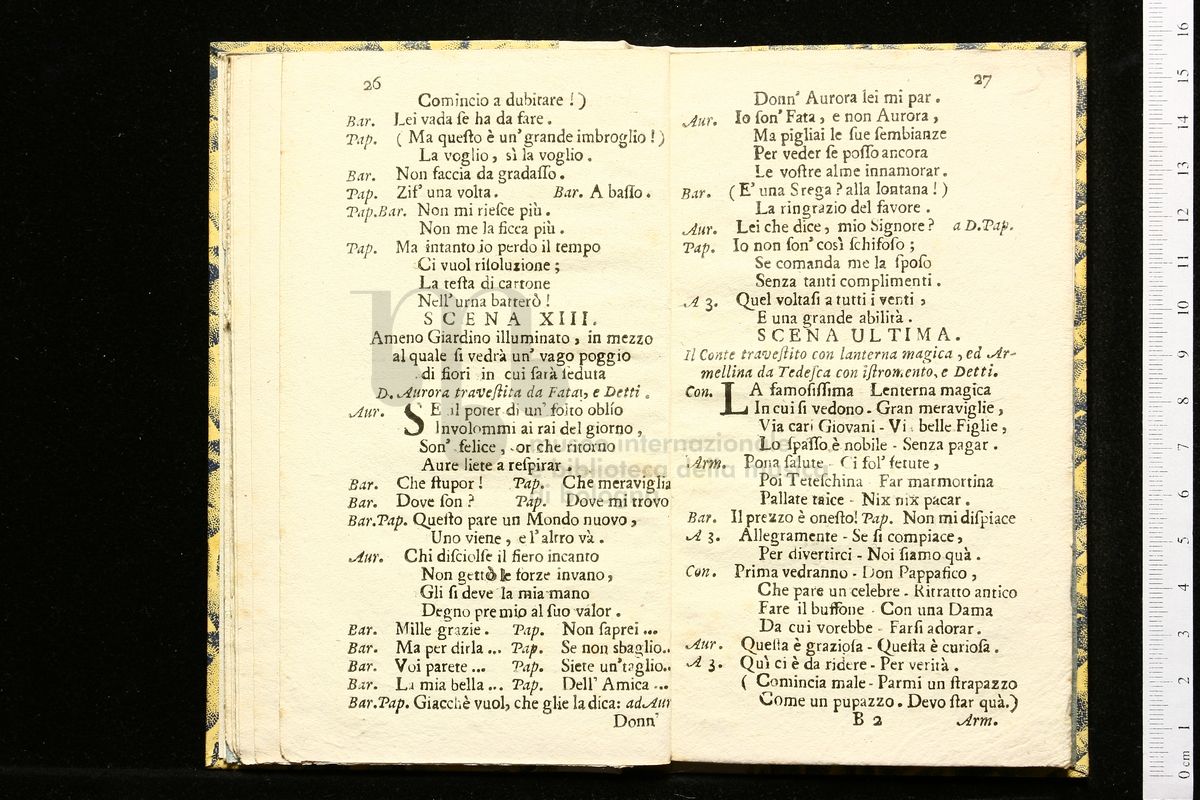 26
Comincio a dubitare !)
Bar. Lei vada ſe ha da fare.
Pap. ( Ma queſto è un' grande imbroglio !)
La voglio, sì la voglio.
Bar. Non faccia da gradaſſo.
Pap. Zif' una volta. Bar. A baſſo.
Pap.Bar. Non mi rieſce più.
Non me la ficca più.
Pap. Ma intanto io perdo il tempo
Ci vuol riſoluzione;
La teſta di cartone
Nell' urna batterò!
SCENA XIII.
Ameno Giardino illuminato, in mezzo
al quale ſi vedrà un' vago poggio
di fiori in cui ſarà ſeduta
D. Aurora traveſtita da Fata, e Detti.
Aur. SE il poter di un' folto oblío
Involommi ai rai del giorno,
Son' felice, or che ritorno
Aure liete a reſpirar.
Bar. Che ſtupor! Pap. Che meraviglia
Bar. Dove ſon? Pap. Dove mi trovo
Bar.Pap. Queſto pare un Mondo nuovo,
Uno viene, e l'altro và.
Aur. Chi diſciolſe il fiero incanto
Non gettò le forze invano,
Gli ſi deve la mia mano
Degno premio al ſuo valor.
Bar. Mille grazie. Pap. Non ſaprei ...
Bar. Ma per dirla ... Pap. Se non sbaglio..
Bar. Voi parete ... Pap. Siete un' taglio..
Bar. La mia bella ... Pap. Dell' Amica ...
Bar.Pap. Giacchè vuol, che glie la dica: ad Aur
Donn'
27
Donn' Aurora lei mi par.
Aur. Io ſon' Fata, e non Aurora,
Ma pigliai le ſue ſembianze
Per veder ſe poſſo ancora
Le voſtre alme innamorar.
Bar. (E' una Srega? alla lontana!)
La ringrazio del favore.
Aur. Lei che dice, mio Signore? a D.Pap.
Pap. Io non ſon' così ſchifoſo;
Se comanda me la ſpoſo
Senza tanti complimenti.
A 3. Quel voltaſi a tutti i venti,
E una grande abilità.
SCENA ULTIMA.
Il Conte traveſtito con lanterna magica, ed Ar-
mellina da Tedeſca con iſtromento, e Detti.
Con. LA famoſiſſima Lenterna magica
In cui ſi vedono - Gran meraviglie,
Via cari Giovani - Vi belle Figlie,
Lo ſpaſſo è nobile - Senza pagar.
Arm. Pona ſalute Ci ſol' fetute,
Poi Teteſchina - Far marmortina
Pallate traice - Nix nix pacar.
Bar. Il prezzo è oneſto! Pap. Non mi diſpiace
A 3. Allegramente - Se ſi compiace,
Per divertirci - Noi ſiamo quà.
Con. Prima vedranno - Don Pappafico,
Che pare un celebre - Ritratto antico
Fare il buffone - Con una Dama
Da cui vorebbe - Farſi adorar.
Aur. Queſta è grazioſa - Queſta è curioſa.
A 3. Quì ci è da ridere - Per verità.
( Comincia male - Parmi un ſtrapazzo
Come un pupazzo. Devo ſtar quà.)
B 2 Arm.
museo internazionale
e biblioteca della musica
di bologna
0 cm 1 2 3 4 5 6 7 8 9 10 11 12 13 14 15 16